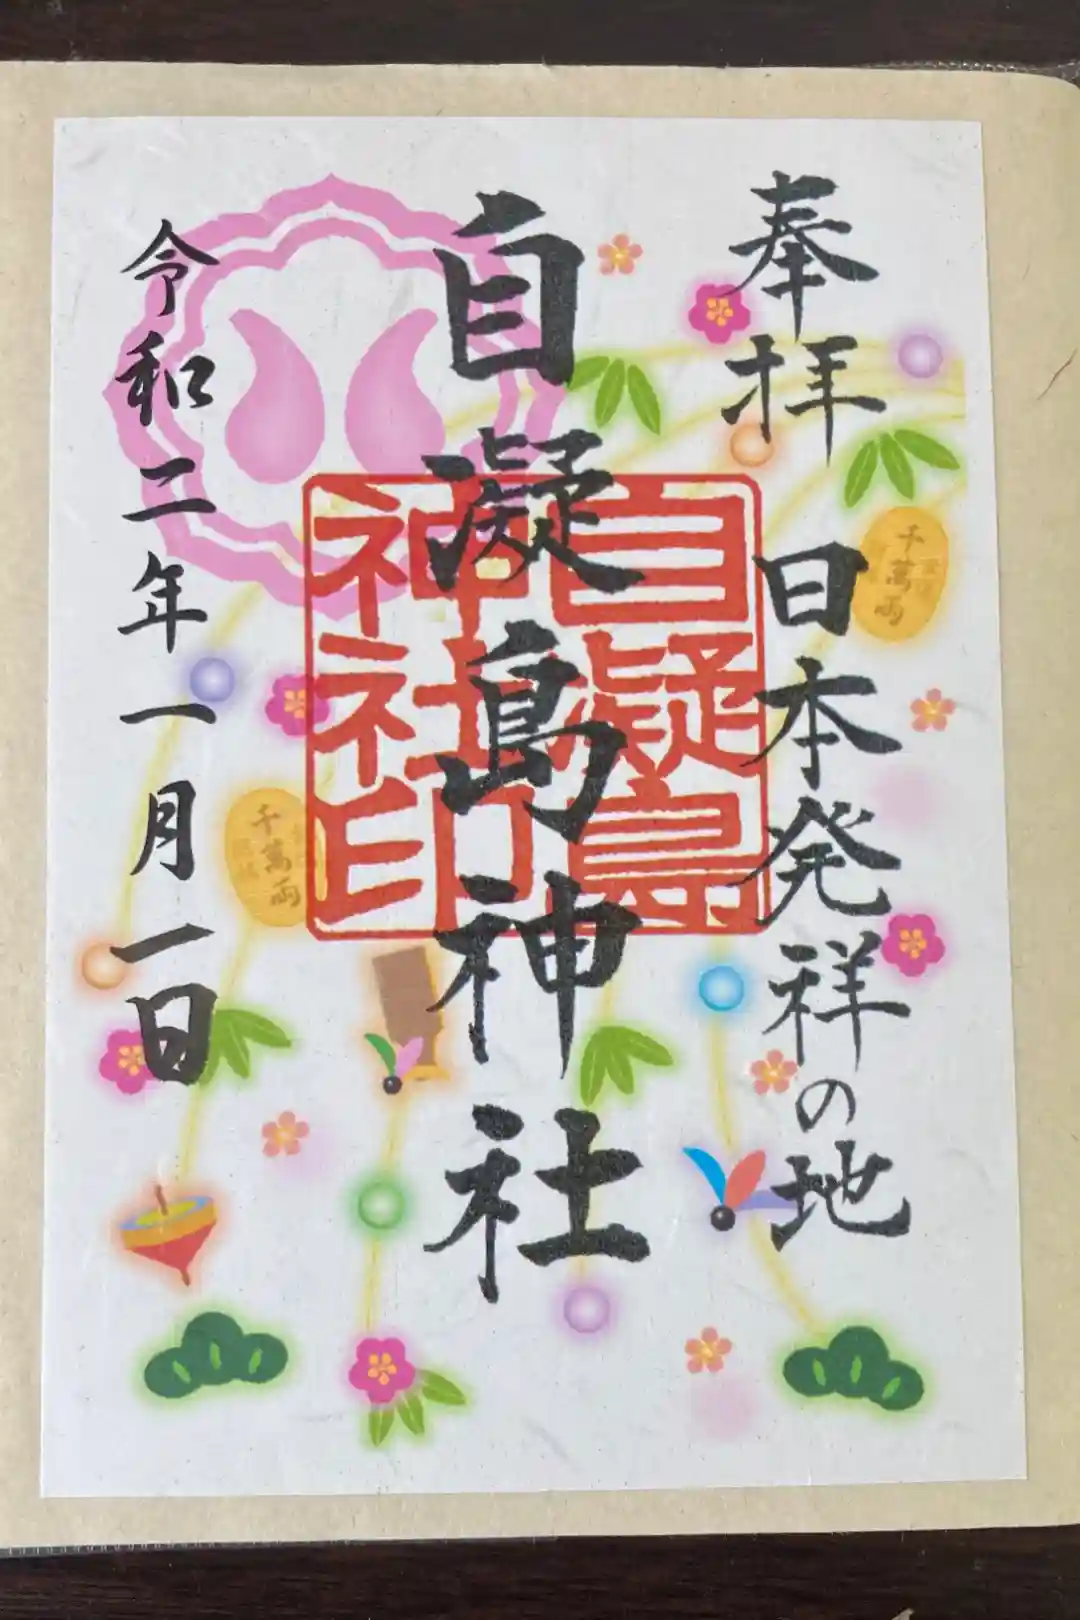 奉拝 日本発祥の地
自凝島神社
自凝島
神社印
令和二年一月一日
千萬両
千萬両